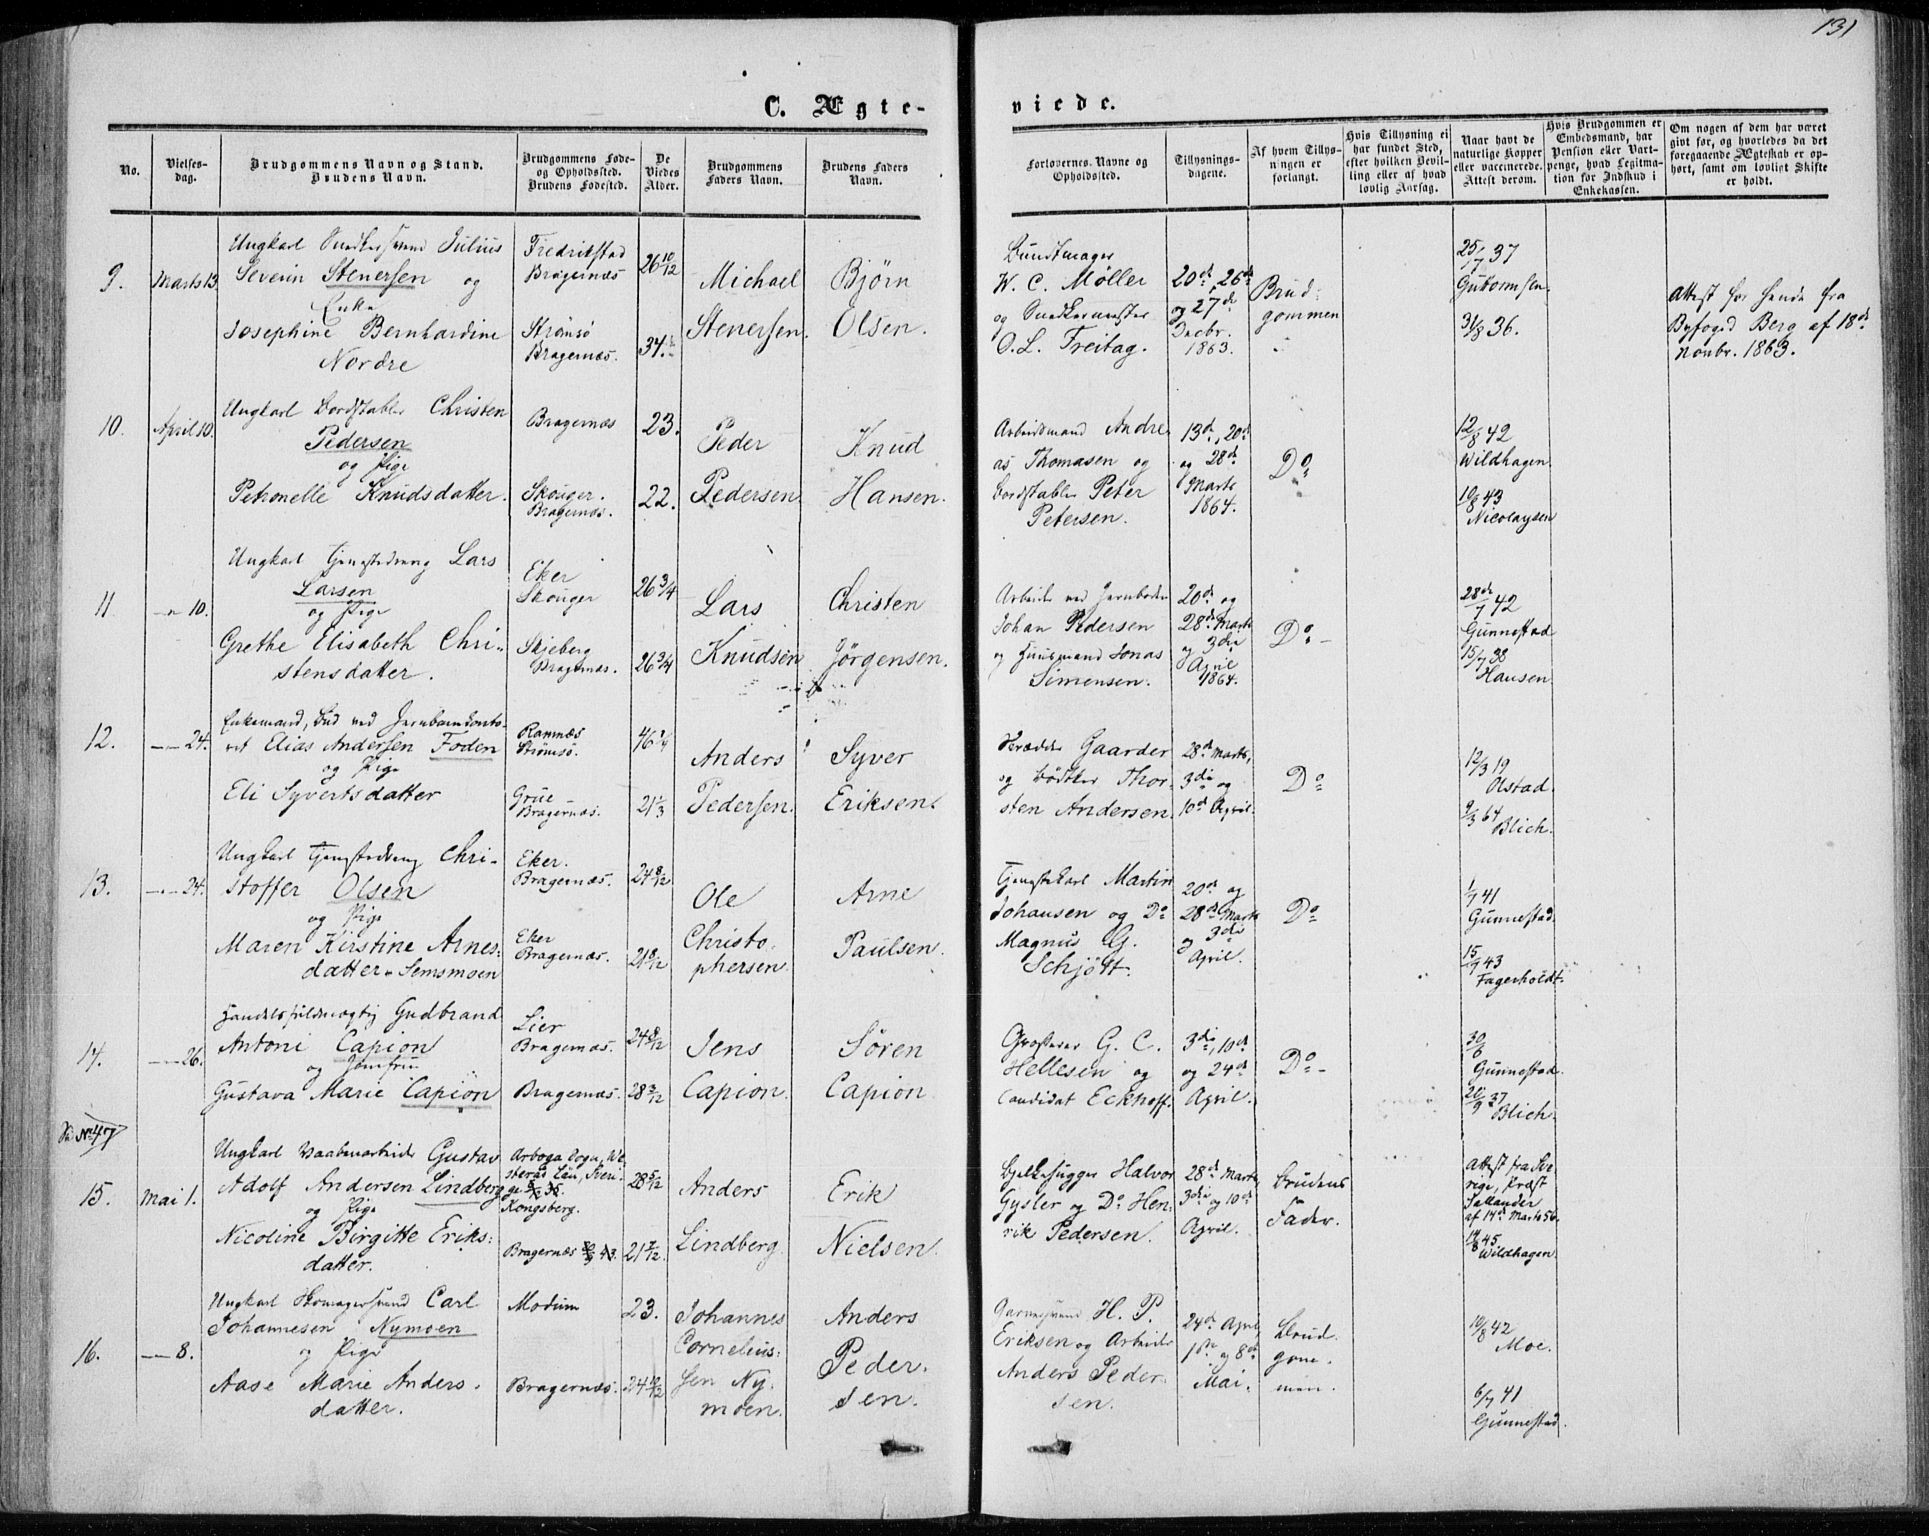 131
C. Ægte-
viede.
No.
Vielses-
dag.
Brudgommens Navn og Stand.
Brudens Navn.
Brudgommens Føde-
og Opholdssted.
Brudens Fødested.
De
Viedes
Alder.
Brudgommens
Faders Navn.
Brudens Faders
Navn.
Forlovernes Navne og
Opholdssted.
Tillysnings-
dagene.
Af hvem Tillys-
ningen er
forlangt.
Hvis Tillysning ei
har fundet Sted,
efter hvilken Bevil-
ling eller af hvad
lovlig Aarsag.
Naar havt de
naturlige Kopper
eller vaccinerede.
Attest derom.
Hvis Brudgommen er
Embedsmand, har
Pension eller Vart-
penge, hvad Legitima-
tion for Indskud i
Enkekassen.
Om nogen af dem har været
givt før, og hvorledes da det
foregaaende Ægteskab er op-
hørt, samt om lovligt Skifte
er holdt.
9.
Marts 13
Ungkarl Snedkersvend Julius
Severin Stenersen og
Enke
Josephine Bernhardine
Nordre
Fredrikstad
Bragernæs
Strømsø
Bragernæs.
26 10/12
34.
Michael
Stenersen.
Bjørn
Olsen.
Bundtmager
W. C. Møller
og Snedkermester
O. L. Freitag.
20de, 26de
og 27de
Decbr.
1863.
Brud-
gommen
25/7 37
Guttormsen
31/8 36.
Attest for hende fra
Byfoged Berg af 18de
Novbr. 1863.
10.
April 10.
Ungkarl Bordstabler Christen
Pedersen
og Pige
Petronelle Knudsdatter.
Bragernæs
Skouger.
Bragernæs.
23.
22.
Peder
Pedersen
Knud
Hansen.
Arbeidsmand Andre-
as Thomasen og
Bordstabler Peter
Petersen.
13de, 20de
og 28de
Marts
1864.
Do
12/8 42
Wildhagen
10/8 43
Nicolaysen
11.
-"- 10.
Ungkarl Tjenestedreng Lars
Larsen
og Pige
Grethe Elisabeth Chri-
stensdatter.
Eker
Skouger
Skjeberg
Bragernæs.
26 3/4
26 3/4
Lars
Knudsen
Christen
Jørgensen.
Arbeider ved Jernbanen
Johan Pedersen
og Huusmand Jonas
Simensen.
20de og
28de Marts
og 3die
April
1864.
Do -
28de/7 42
Gunnestad
15/7 38
Hansen
12.
-"- 24.
Enkemand, Bud ved Jernbanekonto-
ret Elias Andersen Foden
og Pige
Eli Syvertsdatter
Ramnæs
Strømsø.
Grue
Bragernæs.
46 1/4
21 1/3
Anders
Pedersen.
Syver
Eriksen.
Skrædder Gaarder
og Bødtker Thor-
sten Andersen.
28de Marts,
3die og
10de April.
Do
12/3 19
Ustad.
9/3 64
Blich.
13.
-"- 24.
Ungkarl Tjenestedreng Chri-
stoffer Olsen
og Pige
Maren Kirstine Arnes-
datter Semsmoen
Eker.
Bragernæs.
Eker
Bragernæs.
24 8/12
21 8/12
Ole
Christo-
phersen.
Arne
Paulsen.
Tjenestekarl Martin
Johansen og Do
Magnus G.
Schjøtt.
20de og
28de Marts
og 3die
April.
Do
1/7 41
Gunnestad.
15/9 43
Fagerholdt.
14.
-"- 26.
Handelsfuldmægtig Gudbrand
Antoni Capion
og Jomfru
Gustava Marie Capion
Lier
Bragernæs.
Bragernæs.
24 8/12
28 3/12
Jens
Capion.
Søren
Capion
Grosserer G. C.
Hellesen og
Candidat Eckhoff.
3die, 10de
og 24de
April.
Do -
30/6
Gunnestad.
20/9 37
Blich.
No 47
15.
Mai 1.
Ungkarl Vaabenarbeider Gustav
Adolf Andersen Lindberg
og Pige
Nicoline Birgitte Eriks-
datter.
Arboga Sogn, We-
sterås Län, Sveri-
ge 35.
Kongsberg.
Bragernæs 43.
28 5/12
21 7/12
Anders
Lindberg.
Erik
Nielsen.
Bjelkehugger Halvor
Gysler og Do Hen-
rik Pedersen.
28de Marts
3die og 10de
April.
Brudens
Fader.
Attest fra Sve-
rige, Præst
Sallander
af 14de Marts 56.
19/8 45
Wildhagen
16.
-"- 8.
Ungkarl Skomagersvend Carl
Johannesen Nymoen
og Pige
Aase Marie Anders-
datter.
Modum
Bragernæs.
23.
24 10/12
Johannes
Cornelius-
sen Ny-
moen.
Anders
Peder-
sen.
Garversvend H. P.
Eriksen og Arbeider
Anders Peder-
sen.
24de April,
1ste og 8de
Mai.
Brud-
gom-
men.
19/8 42
Moe.
6/7 41
Gunnestad.